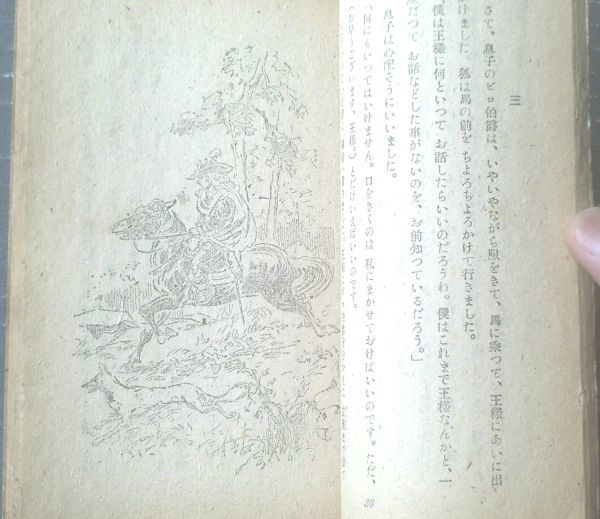 三
さて、息子のピロ伯爵は、いやいやながら服をきて、馬に乗つて、王様にあいに出
けました。狐は馬の前を ちよろちよろかけて行きました。
僕は王様に何といつて お話したらいいのだろうね。僕はこれまで王様なんかと、一
だつて お話などした事がないのを、お前知つているだろう。」
息子は心配そうにいいました。
「何にもいつてはいけません。口をきくのは 私にまかせておけばいいのです。ただ、
（お早うございます、王様。）とだけいえばいいのです。
36